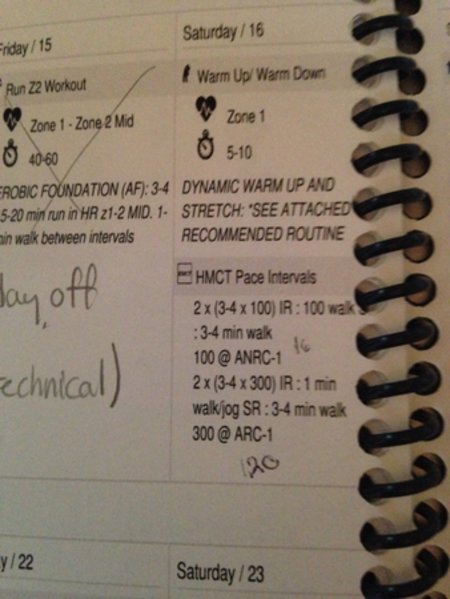 Friday / 15
Run Z2 Workout
Zone 1 - Zone 2 Mid
40-60
EROBIC FOUNDATION (AF): 3-4
5-20 min run in HR z1-2 MID. 1-
min walk between intervals
day off
echnical)
Saturday / 16
Warm Up/ Warm Down
Zone 1
5-10
DYNAMIC WARM UP AND
STRETCH: *SEE ATTACHED
RECOMMENDED ROUTINE
HMCT Pace Intervals
2 x (3-4 x 100) IR : 100 walk S
: 3-4 min walk
100 @ ANRC-1
16
2 x (3-4 x 300) IR : 1 min
walk/jog SR : 3-4 min walk
300 @ ARC-1
120
y / 22
Saturday / 23